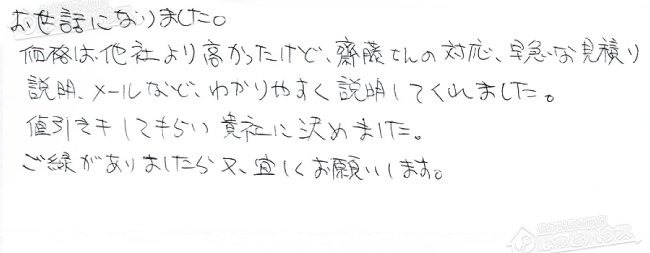 お世話になりました。
価格は、他社より高かったけど、齋藤さんの対応、早急な見積り
説明、メールなど、わかりやすく説明してくれました。
値引きもしてもらい貴社に決めました。
ご縁がありましたら又、宜しくお願いします。